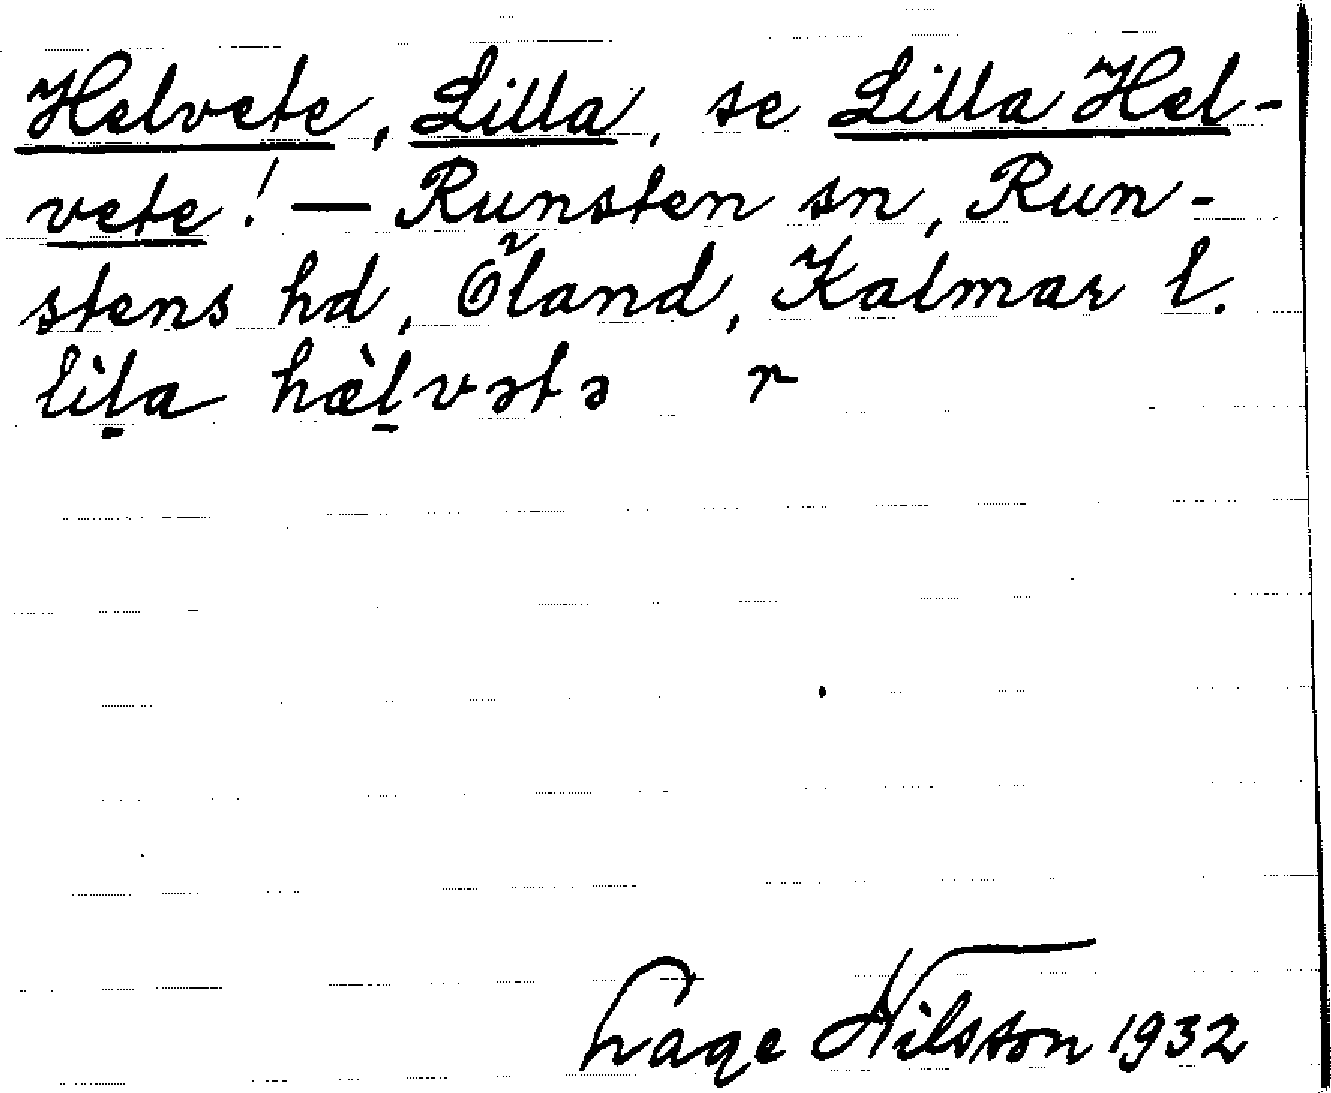 Helvete, Lilla, se Lilla Hel-
vete! — Runsten sn, Run-
stens hd, Öland, Kalmar l.
lil̠a hæ̀l̠vətə r
Nilsson 1932